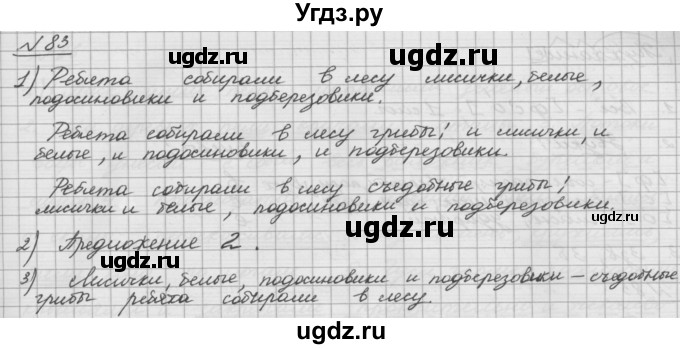 Угдз.ру
N 83
1) Ребята собирали в лесу лисички, белые,
подосиновики и подберезовики.
Ребята собирали в лесу грибы: и лисички, и
белые, и подосиновики, и подберезовики.
Ребята собирали в лесу съедобные грибы:
лисички и белые, подосиновики и подберезовики.
2) Предложение 2.
3) Лисички, белые, подосиновики и подберезовики – съедобные
грибы ребята собирали в лесу.
ugdz.ru
ugdz.ru
ugdz.ru
ugdz.ru
ugdz.ru
ugdz.ru
ugdz.ru
ugdz.ru